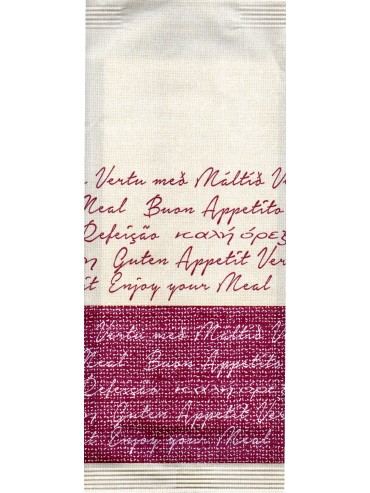 Vertu með Máltið Ve
Meal Buon Appetito
Refeição καλή όρεξ
η Guten Appetit Ver
it Enjoy your Meal
Vertu með Máltið Ve
Meal Buon Appetito
Refeição καλή όρεξ
η Guten Appetit Ver
it Enjoy your Meal